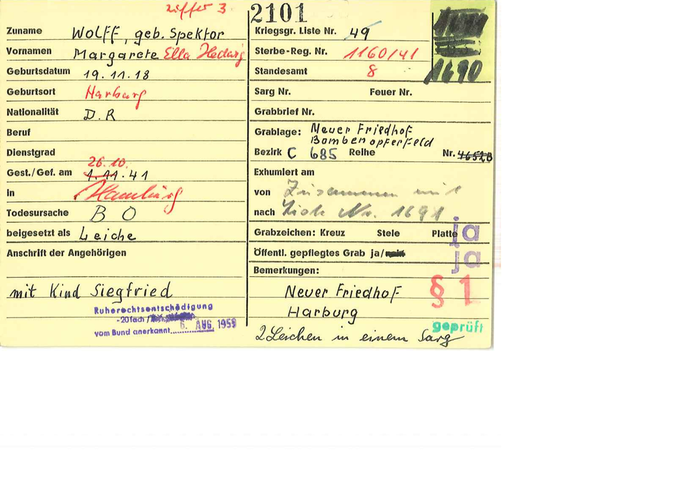 Ziffer 3
Zuname WOLFF, geb. Spektor
Vornamen Margarete Ella Hedwig
Geburtsdatum 19.11.18
Geburtsort Harburg
Nationalität D.R
Beruf
Dienstgrad
26.10.
Gest./Gef. am 1.11.41
in Hamburg
Todesursache B O
beigesetzt als Leiche
Anschrift der Angehörigen
mit Kind Siegfried
Ruherechtsentschädigung
-20fach /
vom Bund anerkannt 6. AUG. 1959
2101
Kriegsgr. Liste Nr. 49
Sterbe-Reg. Nr. 1160/41
Standesamt 8
1690
Sarg Nr. Feuer Nr.
Grabbrief Nr.
Grablage: Neuer Friedhof
Bombenopferfeld
Bezirk C 685 Reihe Nr.
Exhumiert am
von Zusammen mit
nach Liste Nr. 1691
Grabzeichen: Kreuz Stele Platte ja
Öffentl. gepflegtes Grab ja/nein ja
Bemerkungen:
Neuer Friedhof § 1
Harburg
geprüft
2 Leichen in einem Sarg